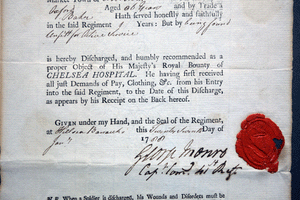 Aged 46 Years and by Trade a
Baker Hath served honestly and faithfully
in the said Regiment Years: But by being found
unfit for Service
is hereby Discharged, and humbly recommended as a
proper Object of His Majesty's Royal Bounty of
CHELSEA HOSPITAL. He having first received
all just Demands of Pay, Clothing, &c. from his Entry
into the said Regiment, to the Date of this Discharge,
as appears by his Receipt on the Back hereof.
GIVEN under my Hand, and the Seal of the Regiment,
at Barracks this Day of
George Monro
N.B. When a Soldier is discharged, his Wounds and Disorders must be